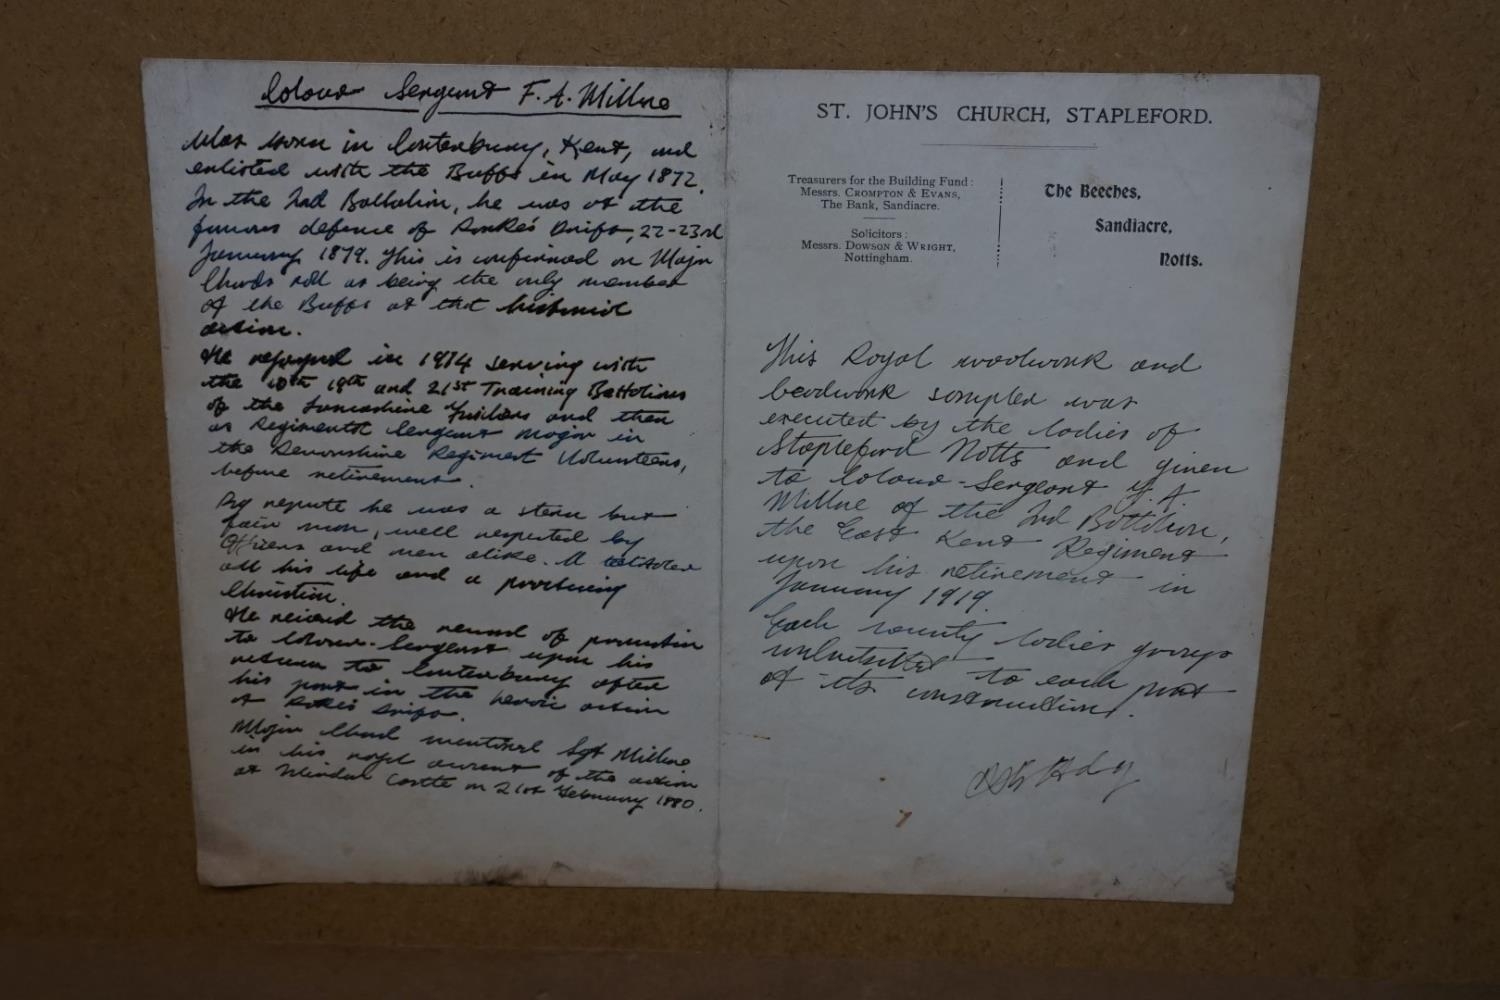 Colour Sergeant F. A. Millne
Was born in Canterbury, Kent, and
enlisted with the Buffs in May 1872.
In the 2nd Battalion, he was at the
famous defence of Rorke's Drift, 22-23rd
January 1879. This is confirmed on Major
Chards roll as being the only member
of the Buffs at that historic
action.
He rejoined in 1914 serving with
the 10th 19th and 21st Training Battalions
of the Lancashire Fusiliers and then
as Regimental Sergeant Major in
the Devonshire Regiment Volunteers,
before retirement.
By repute he was a stern but
fair man, well respected by
Officers and men alike. A teetotaler
all his life and a practicing
Christian.
He received the reward of promotion
to Colour-Sergeant upon his
return to Canterbury after
his part in the heroic action
at Rorke's Drift.
Major Chard mentioned Sgt Millne
in his royal account of the action
at Windsor Castle on 21st February 1880.
ST. JOHN'S CHURCH, STAPLEFORD.
Treasurers for the Building Fund:
Messrs. CROMPTON & EVANS,
The Bank, Sandiacre.
Solicitors:
Messrs. DOWSON & WRIGHT,
Nottingham.
The Beeches,
Sandiacre,
Notts.
This Royal woolwork and
beadwork sampler was
executed by the ladies of
Stapleford Notts and given
to Colour-Sergeant F. A
Millne of the 2nd Battalion,
the East Kent Regiment
upon his retirement in
January 1919.
Each county ladies group
contributed to each part
of its construction.